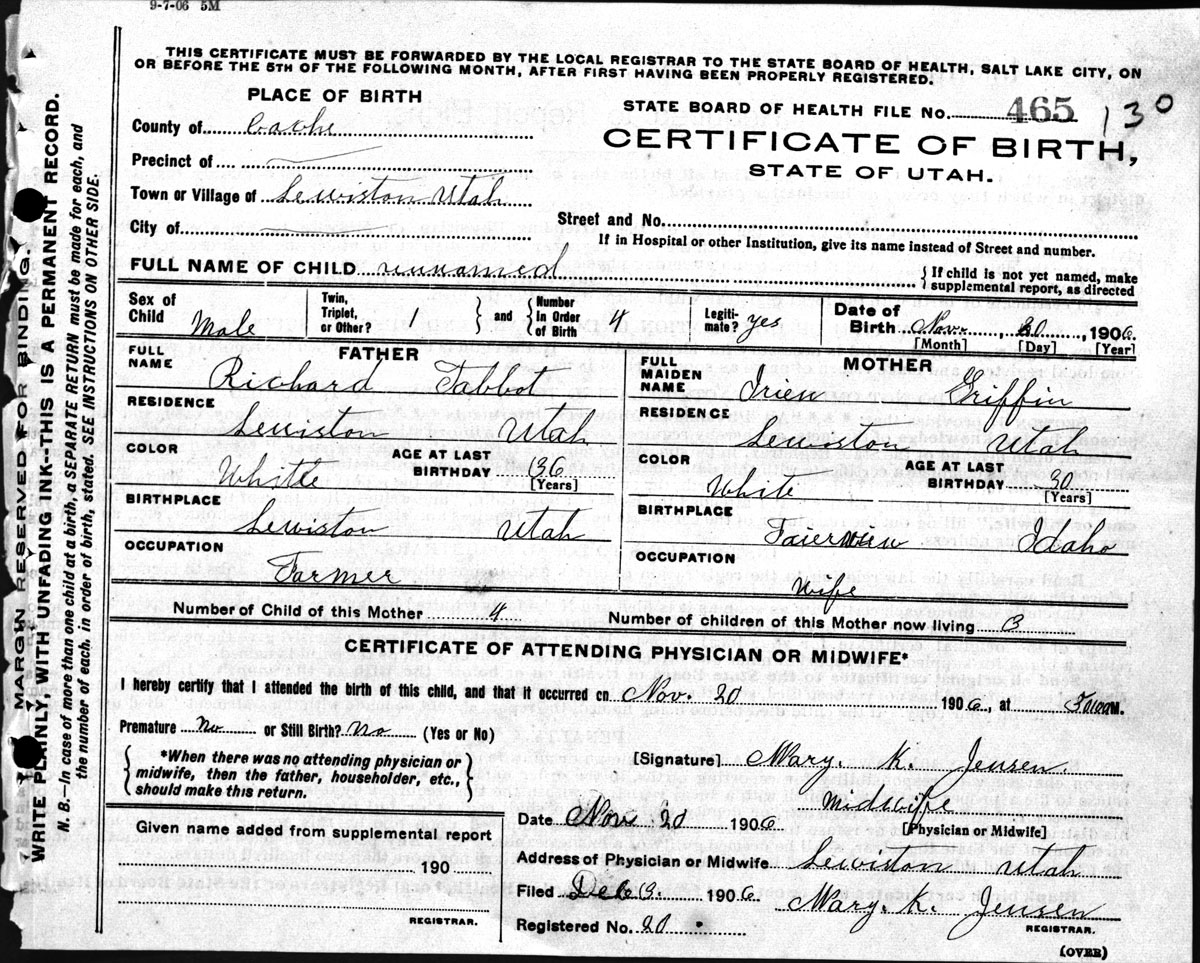 9-7-06 5M
THIS CERTIFICATE MUST BE FORWARDED BY THE LOCAL REGISTRAR TO THE STATE BOARD OF HEALTH, SALT LAKE CITY, ON
OR BEFORE THE 5TH OF THE FOLLOWING MONTH, AFTER FIRST HAVING BEEN PROPERLY REGISTERED.
PLACE OF BIRTH
STATE BOARD OF HEALTH FILE No. 465 130
County of Cache
CERTIFICATE OF BIRTH,
Precinct of
STATE OF UTAH.
Town or Village of Lewiston Utah
Street and No.
City of
If in Hospital or other Institution, give its name instead of Street and number.
FULL NAME OF CHILD unnamed { If child is not yet named, make supplemental report, as directed
Sex of Child Male Twin, Triplet, or Other? 1 } and { Number in Order of Birth 4 Legiti-mate? yes Date of Birth Nov. 20, 1906
[Month] [Day] [Year]
FATHER MOTHER
FULL NAME Richard Tabbot FULL MAIDEN NAME Irien Griffin
RESIDENCE Lewiston Utah RESIDENCE Lewiston Utah
COLOR Whitte AGE AT LAST BIRTHDAY 36 [Years] COLOR White AGE AT LAST BIRTHDAY 30 [Years]
BIRTHPLACE Lewiston Utah BIRTHPLACE Idaho
OCCUPATION Farmer OCCUPATION Wife
Number of Child of this Mother 4 Number of children of this Mother now living 3
CERTIFICATE OF ATTENDING PHYSICIAN OR MIDWIFE*
I hereby certify that I attended the birth of this child, and that it occurred on Nov. 20 1906, at M.
Premature No or Still Birth? No (Yes or No)
{ *When there was no attending physician or midwife, then the father, householder, etc., should make this return. }
[Signature] Mary. K. Jensen.
Midwife
[Physician or Midwife]
Date Nov 20 1906
Given name added from supplemental report
190
REGISTRAR.
Address of Physician or Midwife. Lewiston Utah
Filed Dec 3. 1906 Mary. K. Jensen
REGISTRAR.
Registered No. 20
(OVER)
MARGIN RESERVED FOR BINDING.
WRITE PLAINLY WITH UNFADING INK--THIS IS A PERMANENT RECORD.
N. B.—In case of more than one child at a birth, a SEPARATE RETURN must be made for each, and
the number of each, in order of birth, stated. SEE INSTRUCTIONS ON OTHER SIDE.